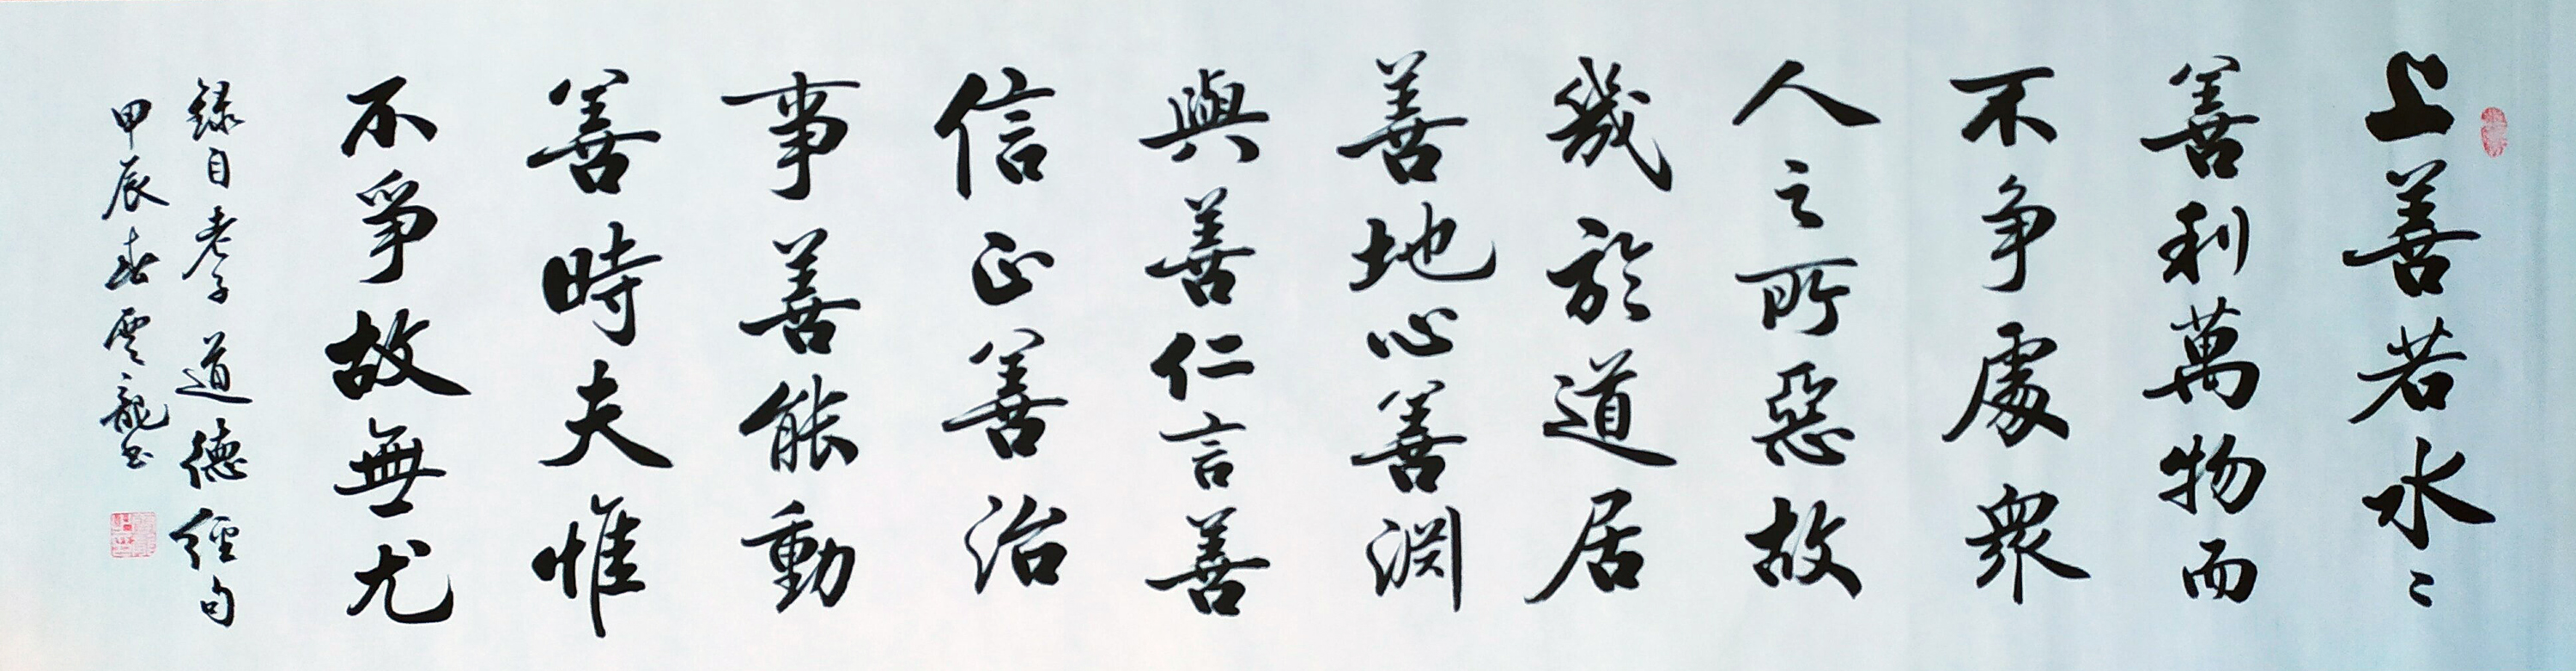 上善若水〻
善利萬物而
不争處衆
人之所惡故
幾於道居
善地心善淵
與善仁言善
信正善治
事善能動
善時夫惟
不爭故無尤
録自老子道德經句
甲辰春雲龍书